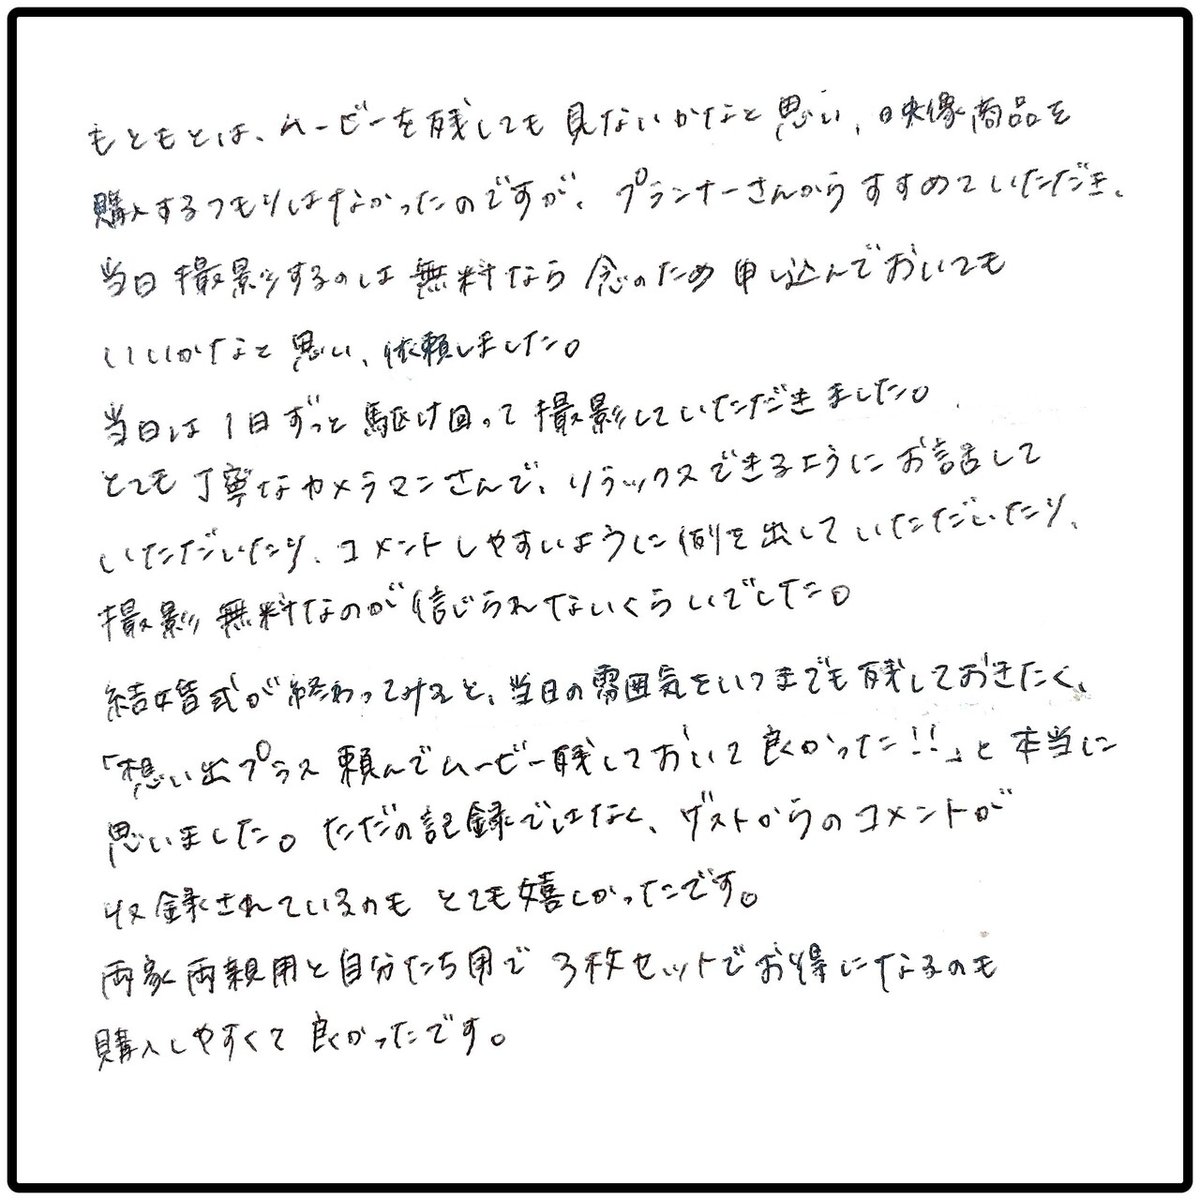 もともとは、ムービーを残しても見ないかなと思い、映像商品を
購入するつもりはなかったのですが、プランナーさんからすすめていただき、
当日撮影するのは無料なら念のため申し込んでおいても
いいかなと思い、依頼しました。
当日は1日ずっと駆け回って撮影していただきました。
とても丁寧なカメラマンさんで、リラックスできるようにお話して
いただいたり、コメントしやすいように例を出していただいたり、
撮影無料なのが信じられないくらいでした。
結婚式が終わってみると、当日の雰囲気をいつまでも残しておきたく、
「想い出プラス頼んでムービー残しておいて良かった!!」と本当に
思いました。ただの記録ではなく、ゲストからのコメントが
収録されているのもとても嬉しかったです。
両家両親用と自分たち用で3枚セットでお得になるのも
購入しやすくて良かったです。